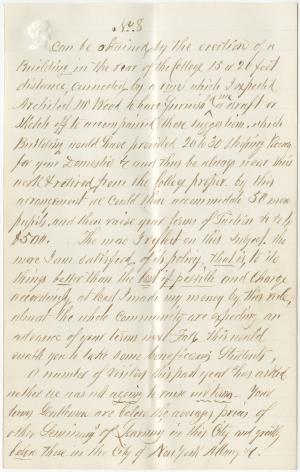 No 8
can be obtained by the erection of a
Building in the rear of the College 15 or 20 feet
distance, connected by a
Architect Mr Wood to have furnish us a draft or
Sketch off to accompained these suggestion, which
Building would have provided 20 to 30 Sleeping Rooms
for your Domestic &c and thus be always near their
work & retired from the College proper. by this
arrangement we could then accommodate 50 more
pupils, and then raise your terms of Tuition &c to
$500, . The more I reflect on this Subject, the
more I am satisfied, of its policy, that is, to do
things better than the best if possible and charge
accordingly, at least I made my money by this rule,
almost the whole community are expecting an
advance of your terms next Fall, this would
enable you to take some beneficiary Students,
A number of Visitors this past year has asked
whether we was not going to raise our terms. Your
terms Gentlemen are below the average prices of
other Seminary's of Learning in this City and greatly
below those in the City of New York Albany &c.